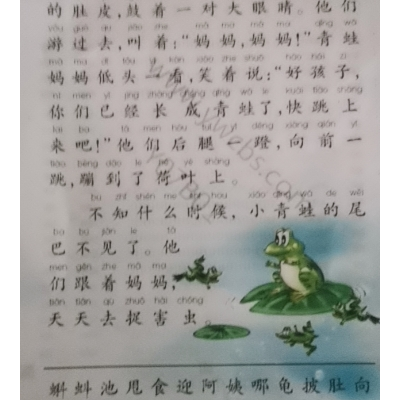 的肚皮,鼓着一对大眼睛。他们
yóu guò qù jiào zhe mā ma mā ma qīng wā
游过去,叫着:“妈妈,妈妈!”青蛙
妈妈低头一看,笑着说:“好孩子,
你们已经长成青蛙了,快跳上
来吧!”他们后腿一蹬,向前一
跳,蹦到了荷叶上。
不知什么时候,小青蛙的尾
巴不见了。他
men gēn zhe mā ma
们跟着妈妈,
tiān tiān qù zhuō hài chóng
天天去捉害虫。
蝌蚪池甩食迎阿姨哪龟披肚向